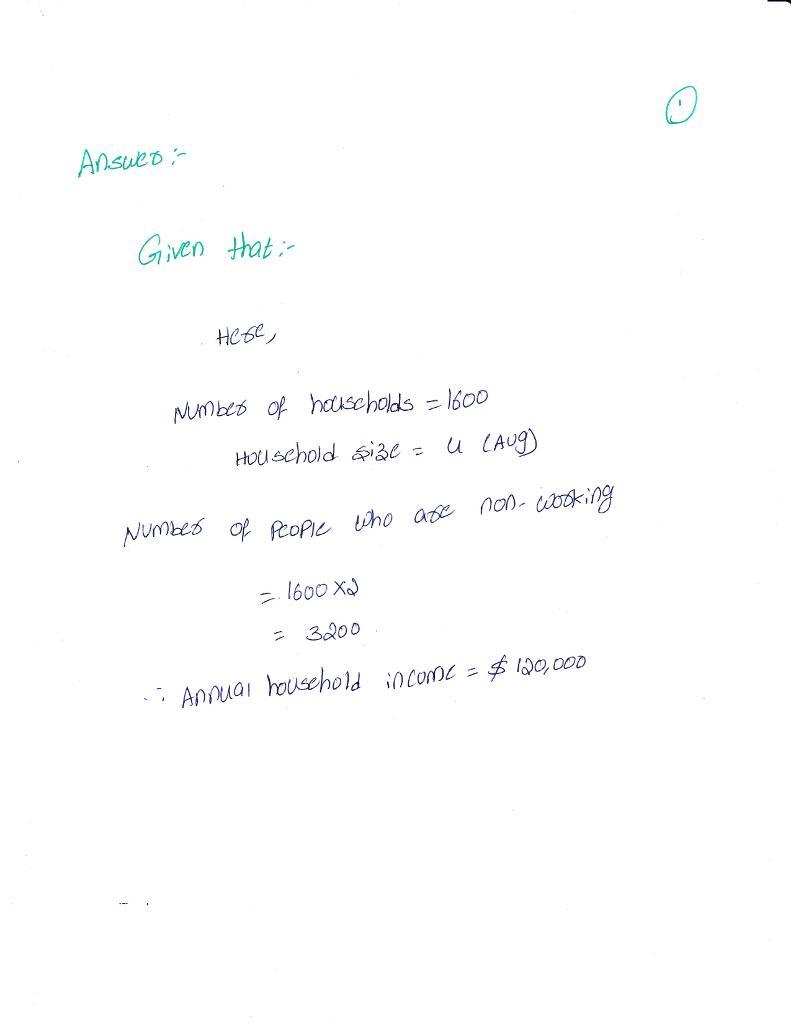 1
Answer :-
Given that :-
Here,
Number of households = 1600
Household size = 4 (Avg)
Number of people who are non-working
= 1600 x 2
= 3200
∴ Annual household income = $ 120,000